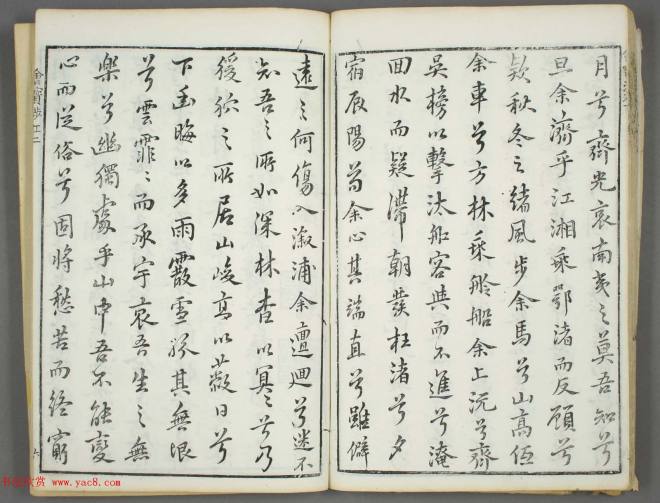 月兮齊光哀南夷之莫吾知兮
旦余濟乎江湘乘鄂渚而反顧兮
欸秋冬之緒風步余馬兮山高低
余車兮方林乘舲船余上沅兮齊
吳榜以擊汰船容與而不進兮淹
回水而疑滯朝發枉渚兮夕
宿辰陽苟余心其端直兮雖僻
遠之何傷入溆浦余邅迴兮迷不
知吾之所如深林杳以冥冥兮乃
猨狖之所居山峻高以蔽日兮
下幽晦以多雨霰雪紛其無垠
兮雲霏霏而承宇哀吾生之無
樂兮幽獨處乎山中吾不能變
心而從俗兮固將愁苦而終窮
涉江二
六
书法欣赏 www.yac8.com